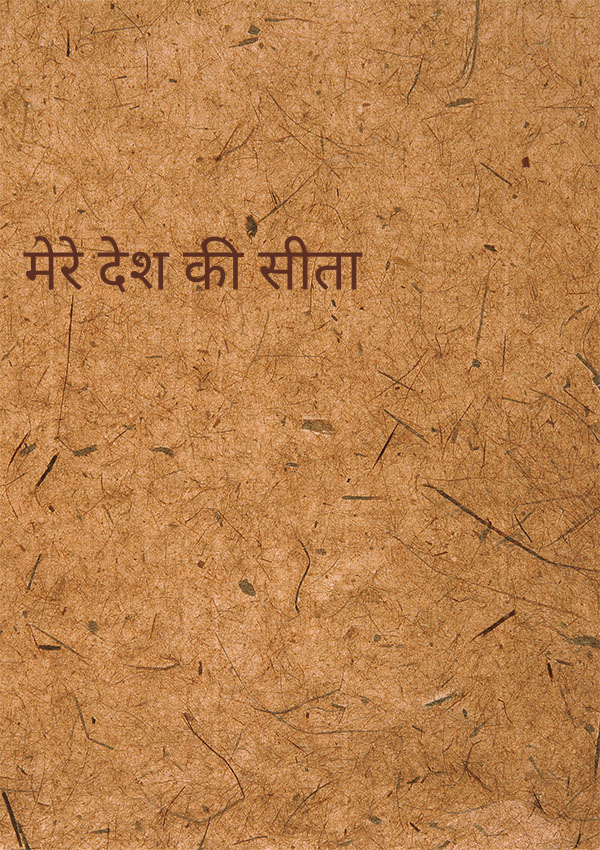 मेरे देश की सीता